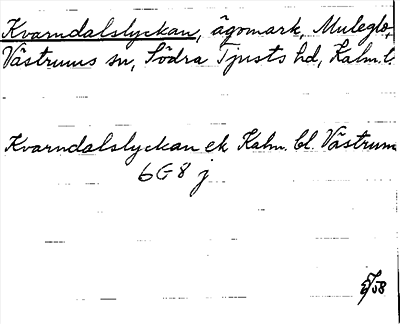 Kvarndalslyckan, ägomark, Mulegle,
Västrums sn, Södra Tjusts hd, Kalm. l.
Kvarndalslyckan ek Kalm. bl. Västrum
6G8 j